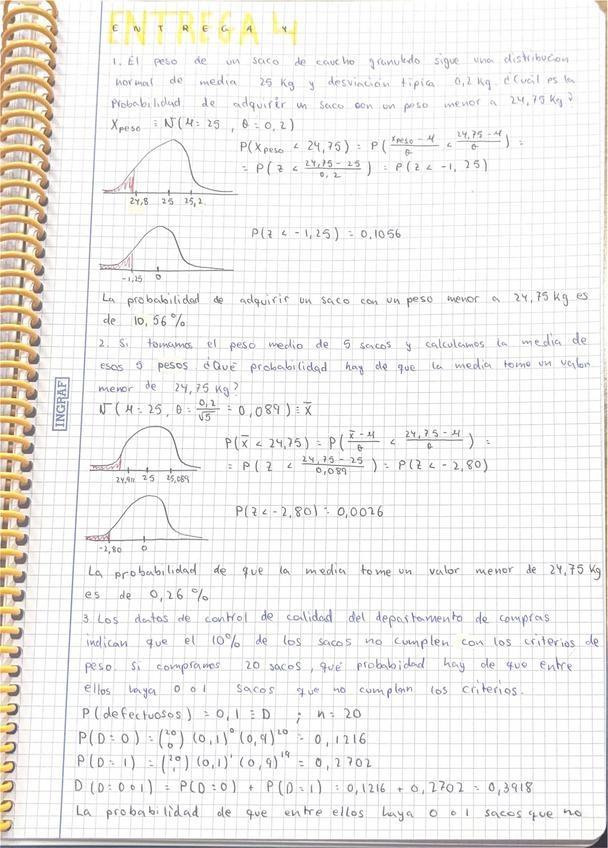 ENTREGA 4
1. El peso de un saco de caucho granulado sigue una distribución
normal de media 25 Kg y desviación típica 0,2 Kg. ¿Cuál es la
Probabilidad de adquirir un saco con un peso menor a 24,75 Kg?
Xpeso ≡ N(μ = 25 , θ = 0,2)
P(Xpeso < 24,75) = P(xpeso - μ / θ < 24,75 - μ / θ) =
= P(Z < 24,75 - 25 / 0,2) = P(Z < -1,25)
24,8 25 25,2
P(Z < -1,25) = 0,1056
-1,25 0
La probabilidad de adquirir un saco con un peso menor a 24,75 Kg es
de 10,56 %
2. Si tomamos el peso medio de 5 sacos y calculamos la media de
esos 5 pesos ¿Qué probabilidad hay de que la media tome un valor
menor de 24,75 Kg?
INGRAF
N(μ = 25, θ = 0,2/√5 = 0,089) ≡ X̄
P(X̄ < 24,75) = P(X̄ - μ / θ < 24,75 - μ / θ) =
= P(Z < 24,75 - 25 / 0,089) = P(Z < -2,80)
24,911 25 25,089
P(Z < -2,80) = 0,0026
-2,80 0
La probabilidad de que la media tome un valor menor de 24,75 Kg
es de 0,26 %
3. Los datos de control de calidad del departamento de compras
indican que el 10% de los sacos no cumplen con los criterios de
peso. Si compramos 20 sacos, qué probabidad hay de que entre
ellos haya 0 o 1 sacos que no cumplan los criterios.
P(defectuosos) = 0,1 ≡ D ; n = 20
P(D = 0) = (20 0) (0,1)⁰ (0,9)²⁰ = 0,1216
P(D = 1) = (20 1) (0,1)¹ (0,9)¹⁹ = 0,2702
D(D = 0 o 1) = P(D = 0) + P(D = 1) = 0,1216 + 0,2702 = 0,3918
La probabilidad de que entre ellos haya 0 o 1 sacos que no